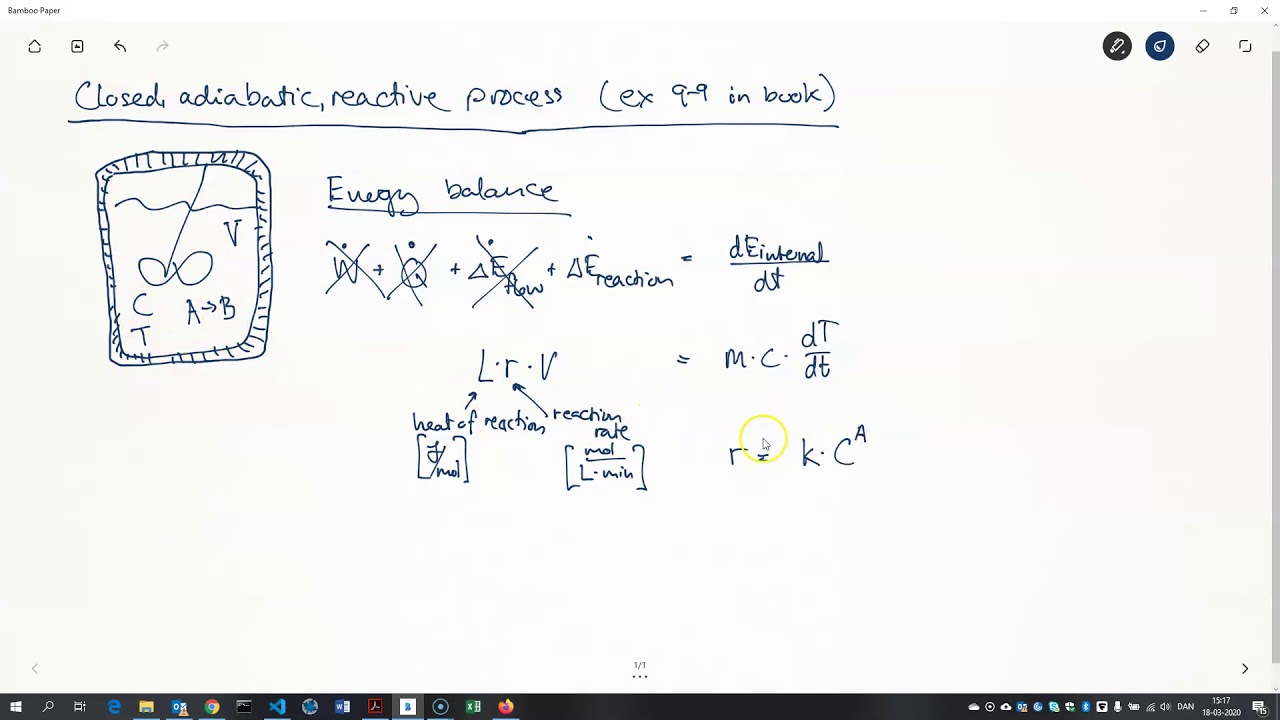 Bamboo Paper
Closed, adiabatic, reactive process (ex 9-9 in book)
V
C
A→B
T
Energy balance
Ẇ + Q̇ + ΔĖ flow + ΔĖ reaction = dE internal / dt
L·r·V = m·c· dT/dt
heat of reaction
[J/mol]
reaction
rate
[mol / L·min]
r = k·C^A
1/1
DAN
15:17
18-03-2020
15